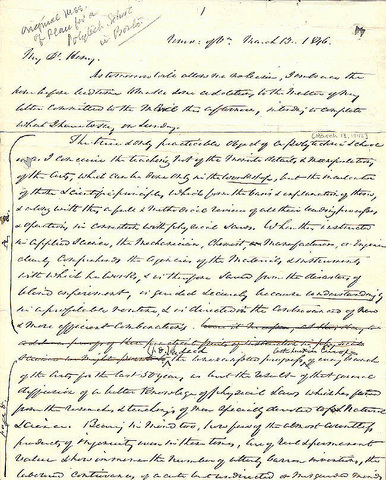 Original Mss.
of Plan for a
Polytech. School
in Boston
1
Univ. of Va. March 13. 1846.
My Dr. Henry,
As tomorrow will allow me no leisure, I embrace the
hour before bedtime to make some additions to the matter of my
letter committed to the Mail this afternoon, intending to complete
what I have to say on Sunday.
[March 13, 1846]
The true & only practicable object of a polytechnic school
is as I conceive the teaching not of the minute details & manipulations
of the arts, which can be done only in the workshop, but the inculcation
of those scientific principles which form the basis & explanation of them,
& along with this a full & methodical review of all their leading processes
& operations in connection with physical laws. When thus instructed
in applied science, the Mechanician, Chemist, Manufacturer, or Engineer
clearly comprehends the agencies of the Materials, & instruments
with which he works, & is therefore saved from the disasters of
blind experiment, is guided securely because understandingly
in a profitable routine & is directed in the contrivance of new
& more efficient combinations.
the unexampled progress of every branch
of the arts for the last 50 years, is but the result of that general
diffusion of a better knowledge of physical laws which has flowed
from the researches & teachings of men specially devoted to physical
Science. Bearing in mind too, how few of the almost countless
products of ingenuity even in these times, are of real & permanent
value & how immense the number of utterly barren inventions, the
laboured contrivances of acute but undirected or misguided minds